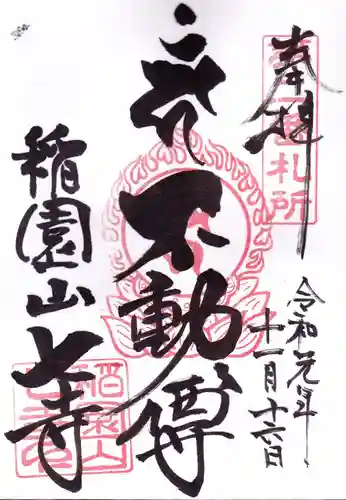 奉拝
令和元年
十一月十六日
不動尊
稲園山七寺
札所